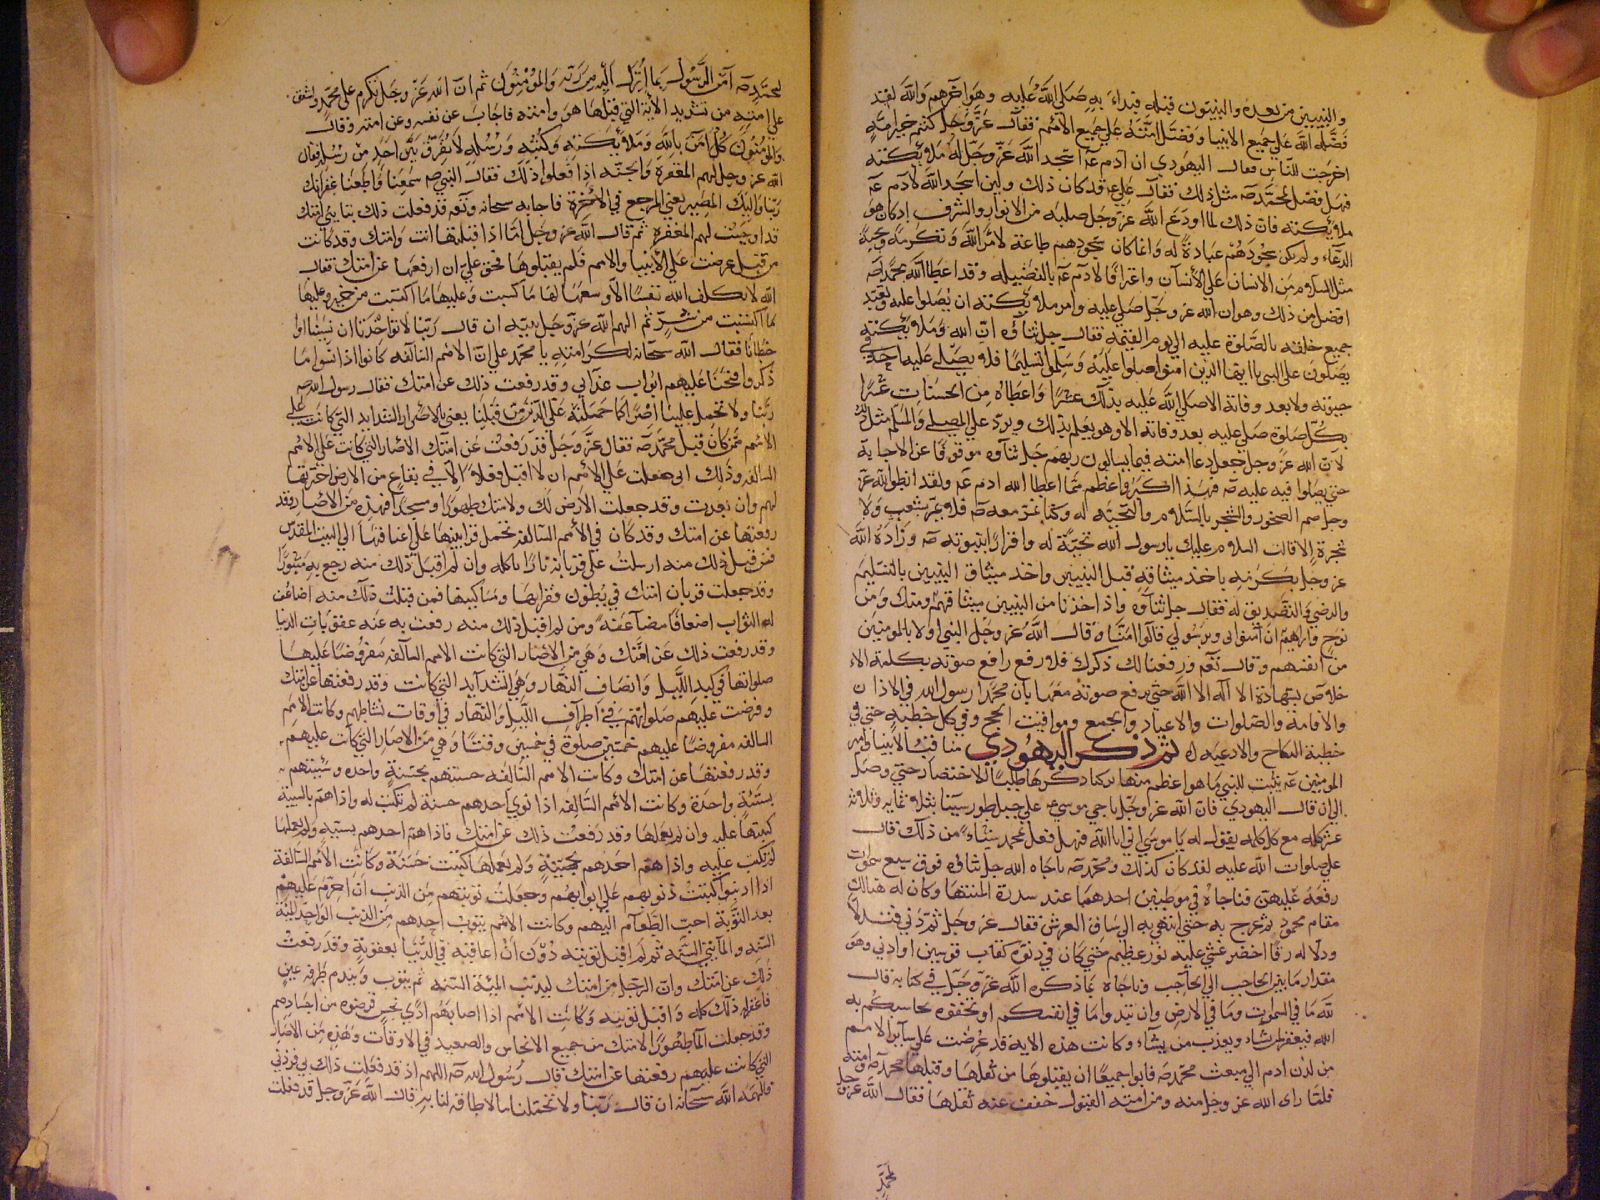 والنبيين من بعده والنبيون قبله فبداء به صلى الله عليه وهو آخرهم والله لقد
فضله الله على جميع الانبيا وفضل امته على جميع الأمم فقال عز وجل كنتم خير امة
اخرجت للناس فقال اليهودي ان آدم عم اسجد الله عز وجل له ملائكته
فهل فضل لمحمد صم مثل ذلك فقال علي عم قد كان ذلك ولين اسجد الله لادم عم
ملائكته فان ذلك لما اودع الله عز وجل صلبه من الانوار والشرف اذ كان هو
الدعاء ولم يكن سجودهم عبادة له وانما كان سجودهم طاعة لأمر الله وتكرمة وتحية
مثل السلام من الانسان على الأنسان واعترافا لادم عم بالفضيله وقد اعطا الله محمدا صم
افضل من ذلك وهو ان الله عز وجل صلى عليه وامر ملائكته ان يصلوا عليه وتعبد
جميع خلقه بالصلوة عليه الى يوم القيمة فقال جل ثناؤه ان الله وملائكته
يصلون على النبي يا ايها الذين امنوا صلوا عليه وسلموا تسليما فلا يصلي عليه احد في
حيوته ولا بعد وفاته الا صلى الله عليه بذلك عشرا واعطاه من الحسنات عشرا
بكل صلوة صلى عليه بعد وفاته الا وهو يعلم بذلك ويرد على المصلي والمسلم مثل ذلك
لان الله عز وجل جعل دعا امته فيما يسالون ربهم جل ثناوه موقوفا عن الاجابة
حتى يصلوا فيه عليه صم فهذا اكبر واعظم مما اعطا الله ادم عم ولقد انطق الله عز
وجل صم الصخور والشجر بالسلام والتحية له وكنا نمر معه صم فلا يمر بشعب ولا
شجرة الا قالت السلام عليك يا رسول الله تحية له واقرارا بنبوته صم وزاده الله
عز وجل بكرمه باخذ ميثاقه قبل النبيين واخذ ميثاق النبيين بالتسليم
والرضى والتصديق له فقال جل ثناؤه واذ اخذنا من النبيين ميثاقهم ومنك ومن
نوح وابراهيم ان آمنوا بي وبرسولي قالوا امنا وقال الله عز وجل النبي اولا بالمومنين
من انفسهم وقال تعم ورفعنا لك ذكرك فلا رفع رافع صوته بكلمة الا
خلاص بشهادة الا اله الا الله حتى يرفع صوته معها بان محمدا رسول الله في الاذان
والاقامة والصلوات والاعياد والجمع ومواقيت الحج وفي كل خطبه حتى في
خطبة النكاح والادعيه له ثم ذكر اليهودي مناقب الانبيا وامير
المومنين عم يثبت للنبي ما هو اعظم منها تركنا ذكرها طلبا للاختصار حتى وصل
الى ان قال اليهودي فان الله عز وجل ناجى موسى عم على جبل طور سينا بثلاثمايه وثلاثة
عشر كلمه مع كل كلمه يقول له يا موسى اني انا الله فهل فعل لمحمد شيئا من ذلك قال
علي صلوات الله عليه لقد كان كذلك ومحمد صم ناجاه الله جل ثناؤه فوق سبع سموات
رفعه عليهن فناجاه في موطنين احدهما عند سدرة المنتها وكان له هنالك
مقام محمود ثم عرج به حتى انتهى به الى ساق العرش فقال عز وجل ثم دنى فتدلا
ودلا له رفا اخضر غشي عليه نور عظيم حتى كان في دنوه كقاب قوسين او ادنى وهو
مقدار ما بين الحاجب الى الحاجب فناجاه بما ذكره الله عز وجل في كتابه قال
لله ما في السموات وما في الارض وان تبدوا ما في انفسكم او تخفوه يحاسبكم به
الله فيغفر لمن يشاء ويعذب من يشاء وكانت هذه الايه قد عرضت على ساير الامم
من لدن ادم الى مبعث محمد صم فابوا جميعا ان يقبلوها من ثقلها وقبلها محمد صم وامته
فلما راى الله عز وجل منه ومن امته القبول خفف عنه ثقلها فقال الله عز وجل
لمحمد
لمحمد صم آمن الرسول بما انزل اليه من ربه والمؤمنون ثم ان الله عز وجل تكرم على محمد واشفق
على امته من تشديد الأية التي قبلها هو وامته فاجاب عن نفسه وعن امته وقال
والمؤمنون كل امن بالله وملائكته وكتبه ورسله لا نفرق بين احد من رسله فقال
الله عز وجل لهم المغفرة والجنة اذا فعلوا ذلك فقال النبي صم سمعنا واطعنا غفرانك
ربنا واليك المصير يعني المرجع في الآخرة فاجابه سبحانه وتعم قد فعلت ذلك بتايبي امتك
قد اوجبت لهم المغفرة ثم قال الله عز وجل اما اذا قبلتها انت وامتك وقد كانت
من قبل عرضت على الانبيا والامم فلم يقبلوها فحق علي ان ارفعها عن امتك فقال
الله لا يكلف الله نفسا الا وسعها لها ما كسبت وعليها ما اكتسبت من خير وعليها
ما اكتسبت من شر ثم الهم الله عز وجل نبيه ان قال ربنا لا تؤاخذنا ان نسينا او
اخطانا فقال الله سبحانه لكرامته يا محمد علي ان الامم السالفه كانوا اذا نسوا ما
ذكروا فتحنا عليهم ابواب عذابي وقد رفعت ذلك عن امتك فقال رسول الله صم
ربنا ولا تحمل علينا اصرا كما حملته على الذين من قبلنا يعني بالاصرار الشدايد التي كانت على
الامم ممن كان قبل محمد صم فقال عز وجل قد رفعت عن امتك الاصار التي كانت على الامم
السالفه وذلك اني جعلت على الأمم ان لا اقبل فعلا الا في بقاع من الارض اخترتها
لهم وان بعدت وقد جعلت الأرض لك ولامتك طهورا ومسجدا فهذه من الآصار وقد
رفعتها عن امتك وقد كان في الأمم السالفه تحمل قرابينها على اعناقها الى البيت المقدس
فمن قبل ذلك منه ارسلت على قربانه نارا تاكله وان لم اقبل ذلك منه رجع به مثبورا
وقد جعلت قربان امتك في بطون فقرايها ومساكينها فمن قبلت ذلك منه اضاعف
له الثواب اضعافا مضاعفه ومن لم اقبل ذلك منه رفعت به عنه عقوبات الدنيا
وقد رفعت ذلك عن امتك وهي من الاصار التي كانت الامم السالفه مفروضا عليها
صلواتها في كبد الليل وانصاف النهار وهي الشدايد التي كانت وقد رفعتها عن امتك
وفرضت عليهم صلواتهم في اطراف الليل والنهار في اوقات نشاطهم وكانت الامم
السالفه مفروضا عليهم خمسين صلوة في خمسين وقتا وهي من الاصار التي كانت عليهم
وقد رفعتها عن امتك وكانت الامم السالفه حسنتهم بحسنة واحده وسيئتهم
بسيئة واحدة وكانت الأمم السالفه اذا نوى احدهم حسنة لم تكتب له واذا هم بالسيئة
كتبتها عليه وان لم يعملها وقد رفعت ذلك عن امتك فاذا هم احدهم بسيئه ولم يعملها
لم تكتب عليه واذا هم احدهم بحسنة ولم يعملها كتبت حسنة وكانت الأمم السالفة
اذا اذنبوا كتبت ذنوبهم على ابوابهم وجعلت توبتهم من الذنب ان احرم عليهم
بعد التوبة احب الطعام اليهم وكانت الامم يتوب احدهم من الذنب الواحد المئة
السنه والمائتي السنه ثم لم اقبل توبته دون ان اعاقبه في الدنيا بعقوبة وقد رفعت
ذلك عن امتك وان الرجل من امتك ليذنب المئة السنه ثم يتوب ويندم طرفه عين
فاغفر له ذلك كله واقبل توبته وكانت الامم اذا اصابهم اذى نجس قرضوه من اجسادهم
وقد جعلت الماء طهورا لامتك من جميع الانجاس والصعيد في الاوقات وهذه من الاصار
التي كانت عليهم رفعتها عن امتك قال رسول الله صم اللهم اذ قد فعلت ذلك بي فزدني
فالهمه الله سبحانه ان قال ربنا ولا تحملنا ما لا طاقة لنا به قال الله عز وجل قد فعلت